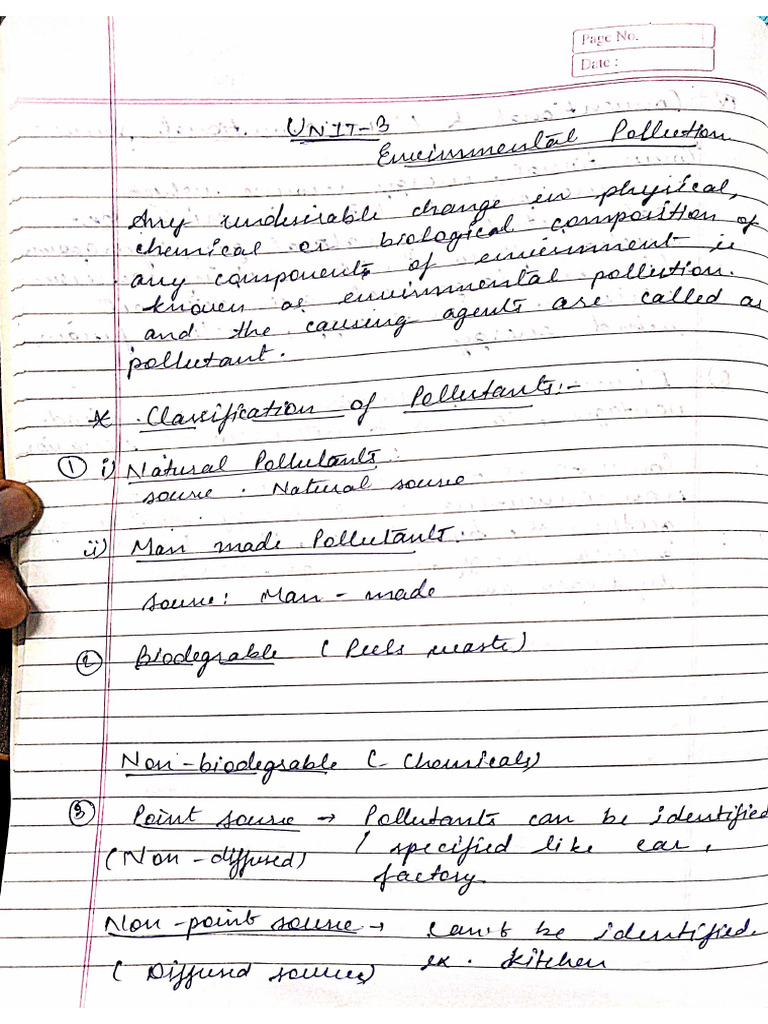 Page No.
Date :
UNIT-3
Environmental Pollution
Any undesirable change in physical,
chemical or biological composition of
any components of environment is
known as environmental pollution.
and the causing agents are called as
pollutant.
* Classification of Pollutants:-
① i) Natural Pollutants:
source . Natural source
ii) Man made Pollutants:
source: Man - made
② Biodegrable ( Peels waste)
Non-biodegrable (- Chemicals)
③ Point source → Pollutants can be identified
(Non-diffused) / specified like car,
factory.
Non-point source → can't be identified.
( Diffused source) ex. kitchen